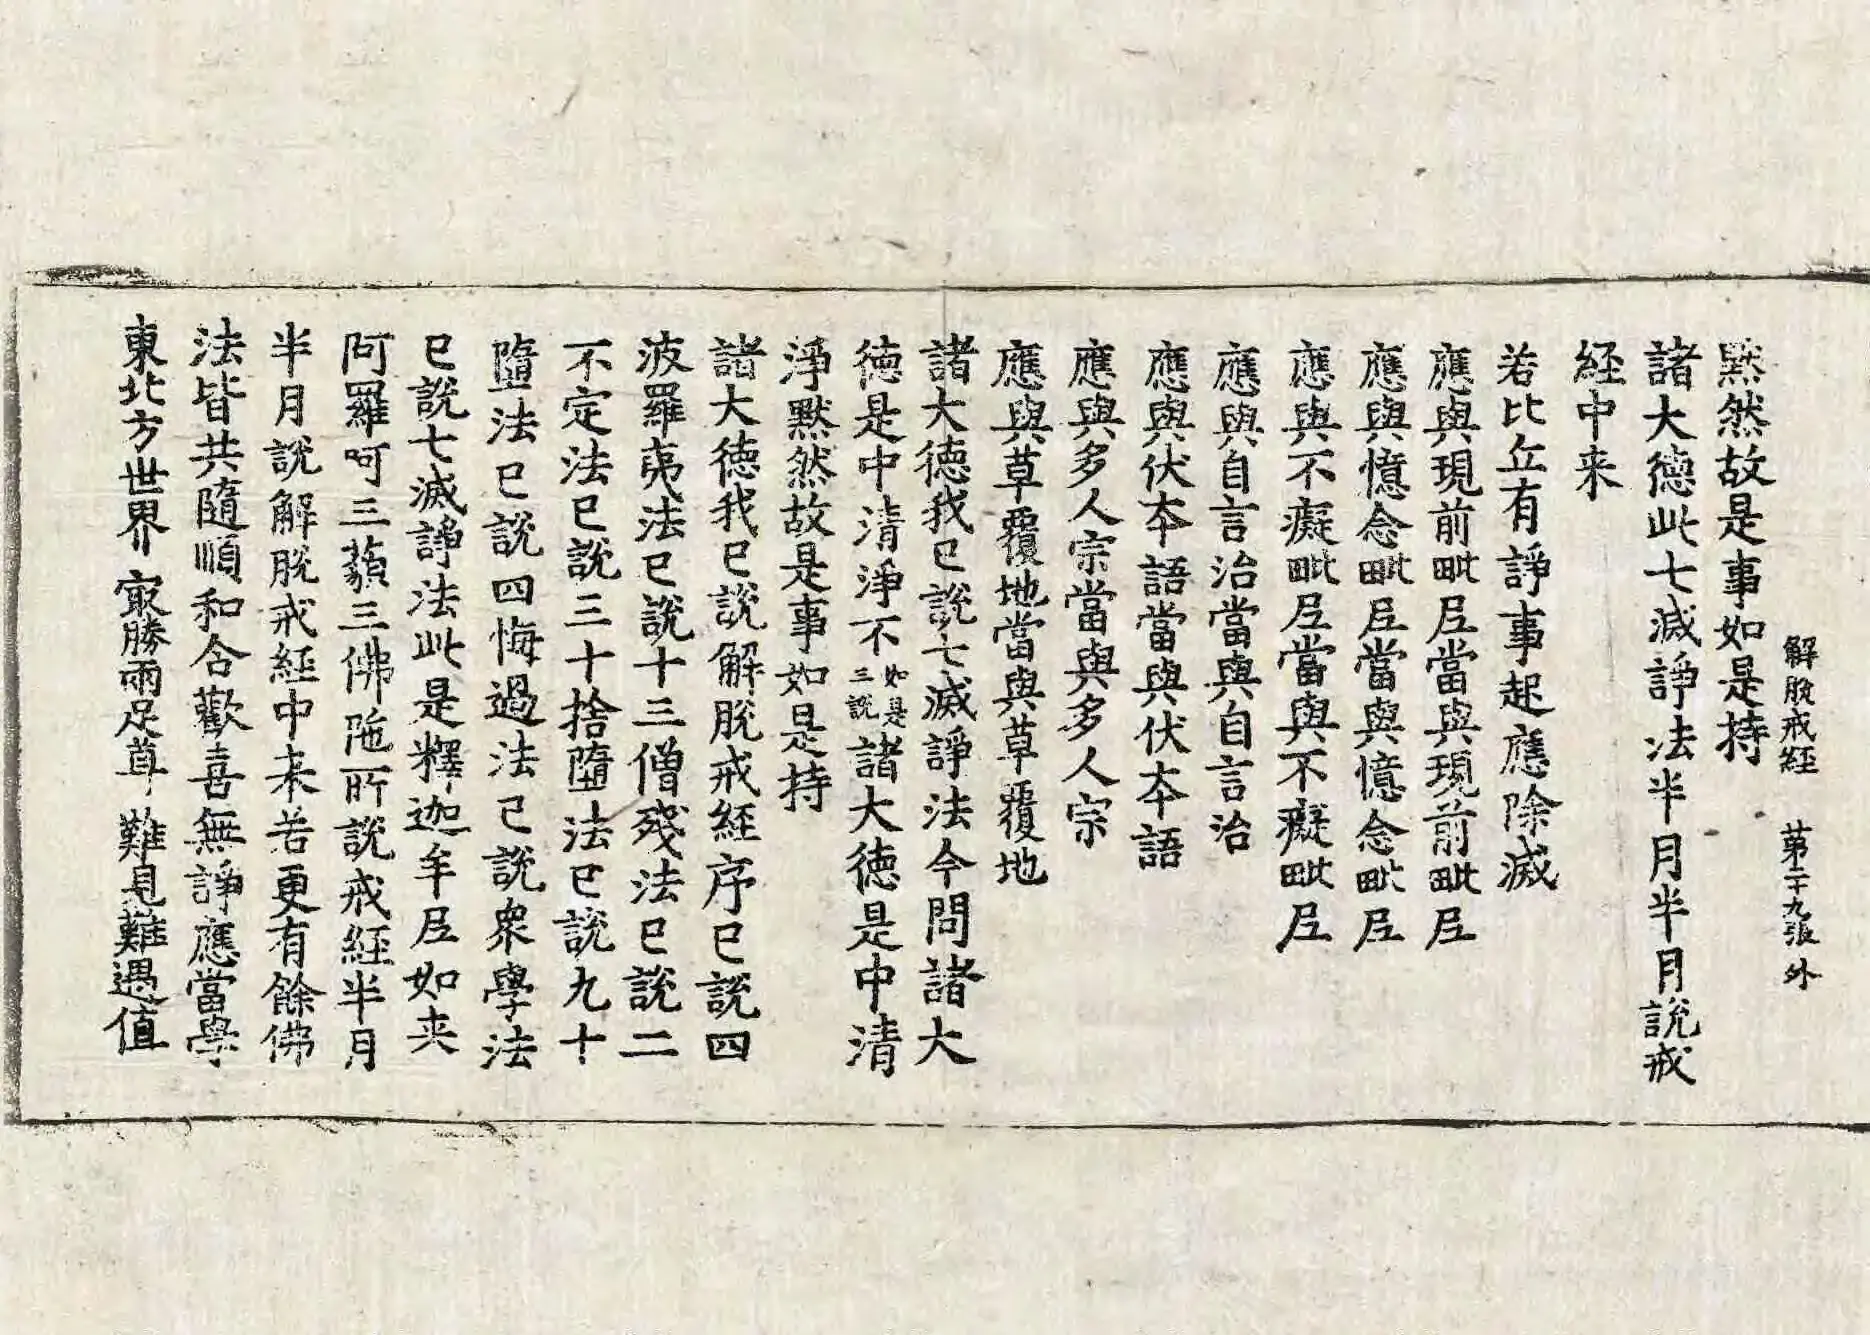 解脫戒経 苐二十九張 外
黙然故是事如是持
諸大徳此七滅諍法半月半月說戒
経中来
若比丘有諍事起應除滅
應與現前毗尼當與現前毗尼
應與憶念毗尼當與憶念毗尼
應與不癡毗尼當與不癡毗尼
應與自言治當與自言治
應與伏夲語當與伏夲語
應與多人宗當與多人宗
應與草覆地當與草覆地
諸大徳我已說七滅諍法今問諸大
徳是中清淨不如是三說諸大徳是中清
淨黙然故是事如是持
諸大徳我已說解脫戒経序已說四
波羅夷法已說十三僧殘法已說二
不定法已說三十捨墮法已說九十
墮法已說四悔過法已說衆學法
已說七滅諍法此是釋迦牟尼如来
阿羅呵三藐三佛陁所說戒経半月
半月說解脫戒経中来若更有餘佛
法皆共隨順和合歡喜無諍應當學
東北方世界 㝡勝兩足尊 難見難遇值